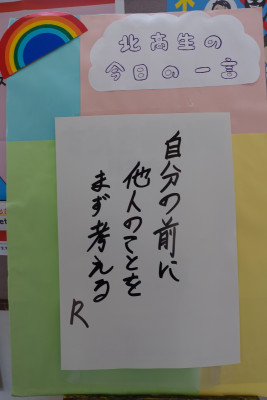 北高生の
今日の一言
自分の前に
他人のことを
まず考える
R